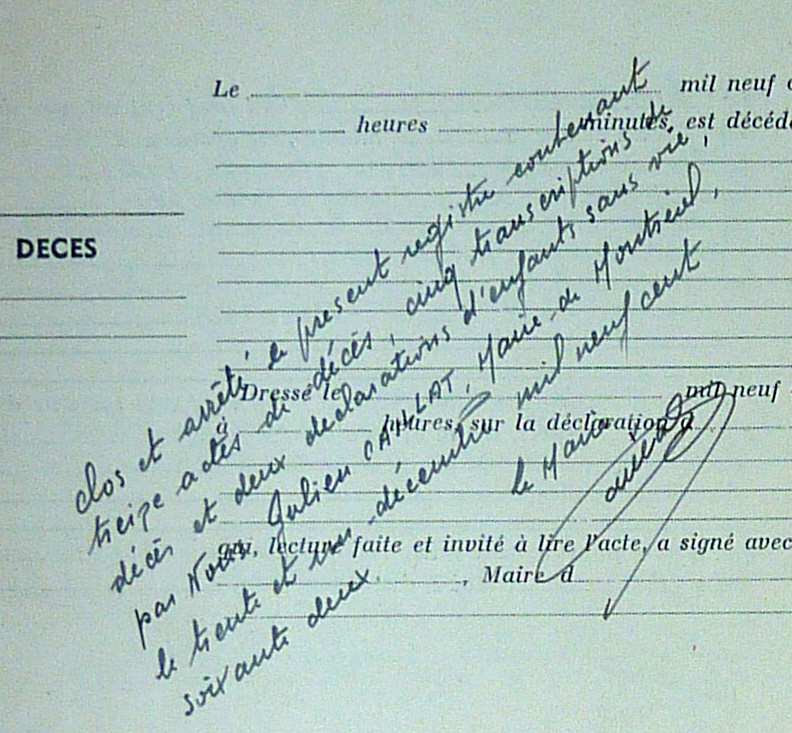 Le mil neuf
heures minutes, est décédé
DECES
Dressé le mil neuf
à heures, sur la déclaration d
qui, lecture faite et invité à lire l'acte, a signé avec
, Maire d
clos et arrêté le présent registre contenant
treize actes de décès, cinq transcriptions de
décès et deux déclarations d'enfants sans vie,
par Nous Julien CAILLAT, Maire de Montréal,
le trente et un décembre mil neuf cent
soixante deux.
le Maire